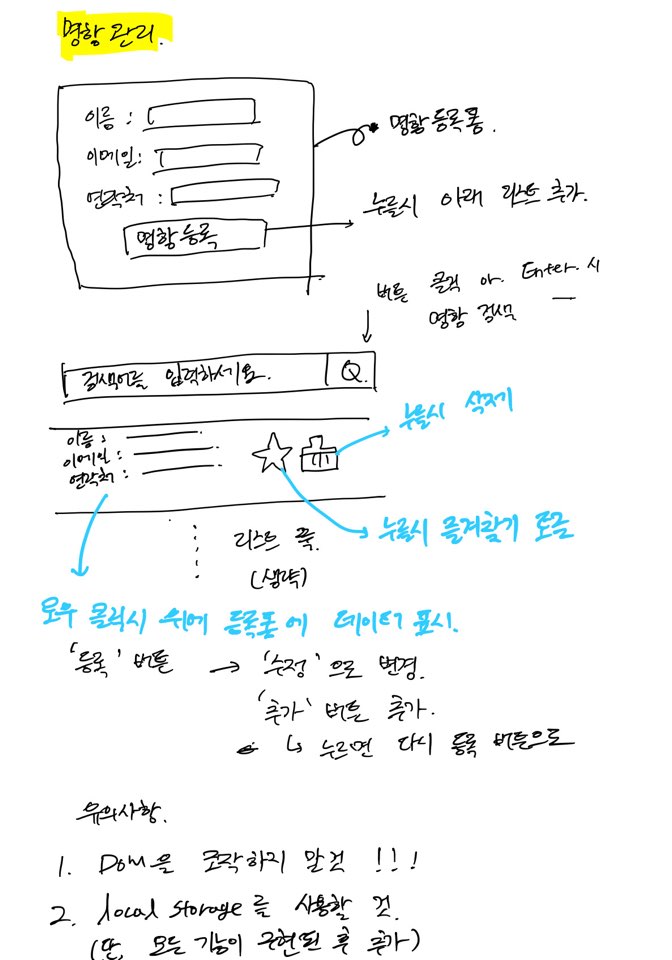 명함 관리.
이름 :
명함 등록 폼.
이메일:
연락처 :
누를시 아래 리스트 추가.
명함 등록
버튼 클릭 or Enter 시
명함 검색
검색어를 입력하세요.
Q.
누를시 삭제
이름 :
이메일 :
연락처 :
누를시 즐겨찾기 토글
리스트 쭉.
(생략)
로우 클릭시 위에 등록폼에 데이터 표시.
'등록' 버튼 → '수정'으로 변경.
'추가' 버튼 추가.
↳ 누르면 다시 등록 버튼으로
유의사항.
1. Dom을 조작하지 말것 !!!
2. local storage를 사용할 것.
(단, 모든 기능이 구현된 후 추가)